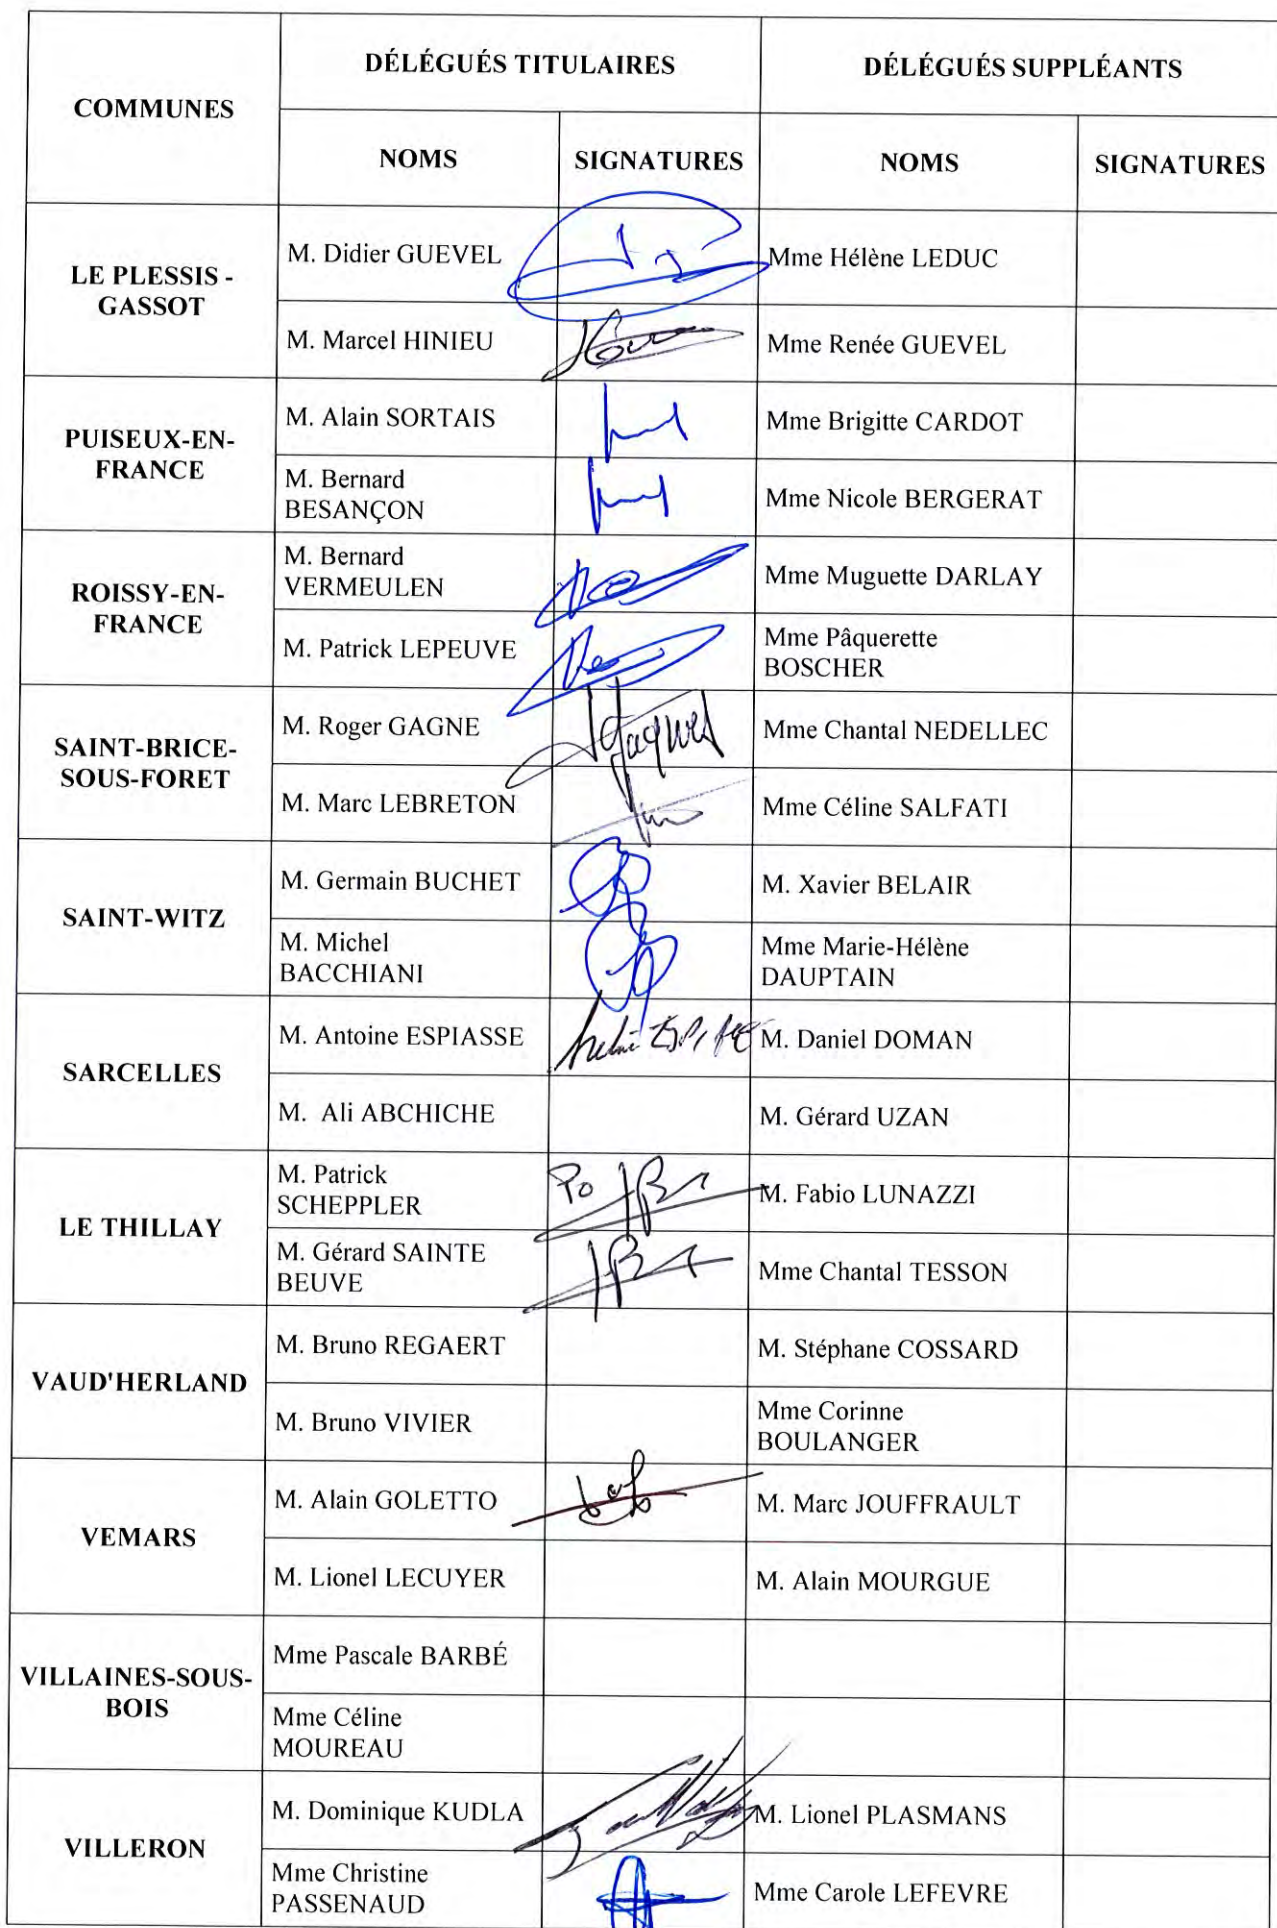 COMMUNES
DÉLÉGUÉS TITULAIRES
DÉLÉGUÉS SUPPLÉANTS
NOMS
SIGNATURES
NOMS
SIGNATURES
LE PLESSIS -
GASSOT
M. Didier GUEVEL
Mme Hélène LEDUC
M. Marcel HINIEU
Mme Renée GUEVEL
PUISEUX-EN-
FRANCE
M. Alain SORTAIS
Mme Brigitte CARDOT
M. Bernard
BESANÇON
Mme Nicole BERGERAT
ROISSY-EN-
FRANCE
M. Bernard
VERMEULEN
Mme Muguette DARLAY
M. Patrick LEPEUVE
Mme Pâquerette
BOSCHER
SAINT-BRICE-
SOUS-FORET
M. Roger GAGNE
Mme Chantal NEDELLEC
M. Marc LEBRETON
Mme Céline SALFATI
SAINT-WITZ
M. Germain BUCHET
M. Xavier BELAIR
M. Michel
BACCHIANI
Mme Marie-Hélène
DAUPTAIN
SARCELLES
M. Antoine ESPIASSE
M. Daniel DOMAN
M. Ali ABCHICHE
M. Gérard UZAN
LE THILLAY
M. Patrick
SCHEPPLER
Po
M. Fabio LUNAZZI
M. Gérard SAINTE
BEUVE
Mme Chantal TESSON
VAUD'HERLAND
M. Bruno REGAERT
M. Stéphane COSSARD
M. Bruno VIVIER
Mme Corinne
BOULANGER
VEMARS
M. Alain GOLETTO
M. Marc JOUFFRAULT
M. Lionel LECUYER
M. Alain MOURGUE
VILLAINES-SOUS-
BOIS
Mme Pascale BARBÉ
Mme Céline
MOUREAU
VILLERON
M. Dominique KUDLA
M. Lionel PLASMANS
Mme Christine
PASSENAUD
Mme Carole LEFEVRE